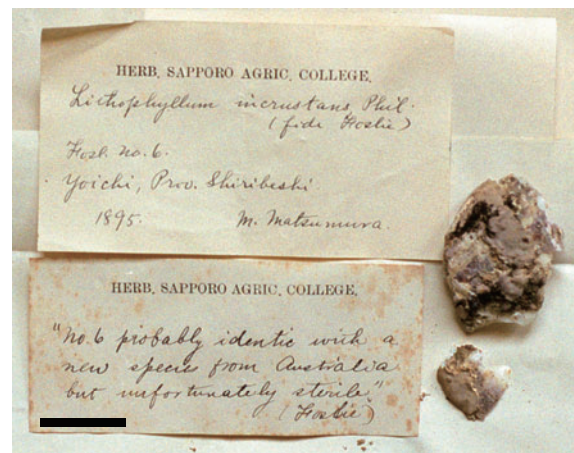 HERB. SAPPORO AGRIC. COLLEGE.
Lithophyllum incrustans Phil.
(fide Foslie)
Fosl. no. 6.
Yoichi, Prov. Shiribeshi.
1895. M. Matsumura.
HERB. SAPPORO AGRIC. COLLEGE.
"No. 6 probably identic with a
new species from Australia
but unfortunately sterile."
(Foslie)